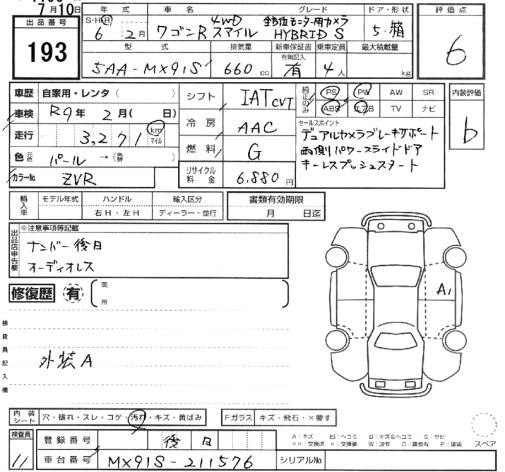 7月10日
出品番号
193
年式 車名 グレード ドア・形状
S・H・R 6年 2月 ワゴンR スマイル 4WD 全方位モニター用カメラ HYBRID S 5 箱
評価点
6
型式 排気量 新車保証書 乗車定員 最大積載量
有無記入
5AA-MX91S 660 cc 有 4人 kg
車歴 自家用・レンタ( )
車検 R9年 2月( 日)
走行 3,271 km マイル
色 元色 パール → (替色 )
カラーNo. ZVR
シフト IAT CVT
冷房 AAC
燃料 G
リサイクル料金 6,880円
純正のみ PS PW AW SR
ABS エアB TV ナビ
内装評価
b
セールスポイント
デュアルカメラブレーキサポート
両側パワースライドドア
キーレスプッシュスタート
輸入車 モデル年式 ハンドル 輸入区分
右H・左H ディーラー・並行
書類有効期限
月 日迄
出品店申告欄
※注意事項等記載
ナンバー後日
オーディオレス
修復歴 有 箇所
検査員記入欄
外装A
A1
内装シート 穴・破れ・スレ・コゲ・汚れ・キズ・黄ばみ
Fガラス キズ・飛石・×要す
スペア
検査員
11
登録番号 後日
車台番号 MX91S-211576 シリアルNo.